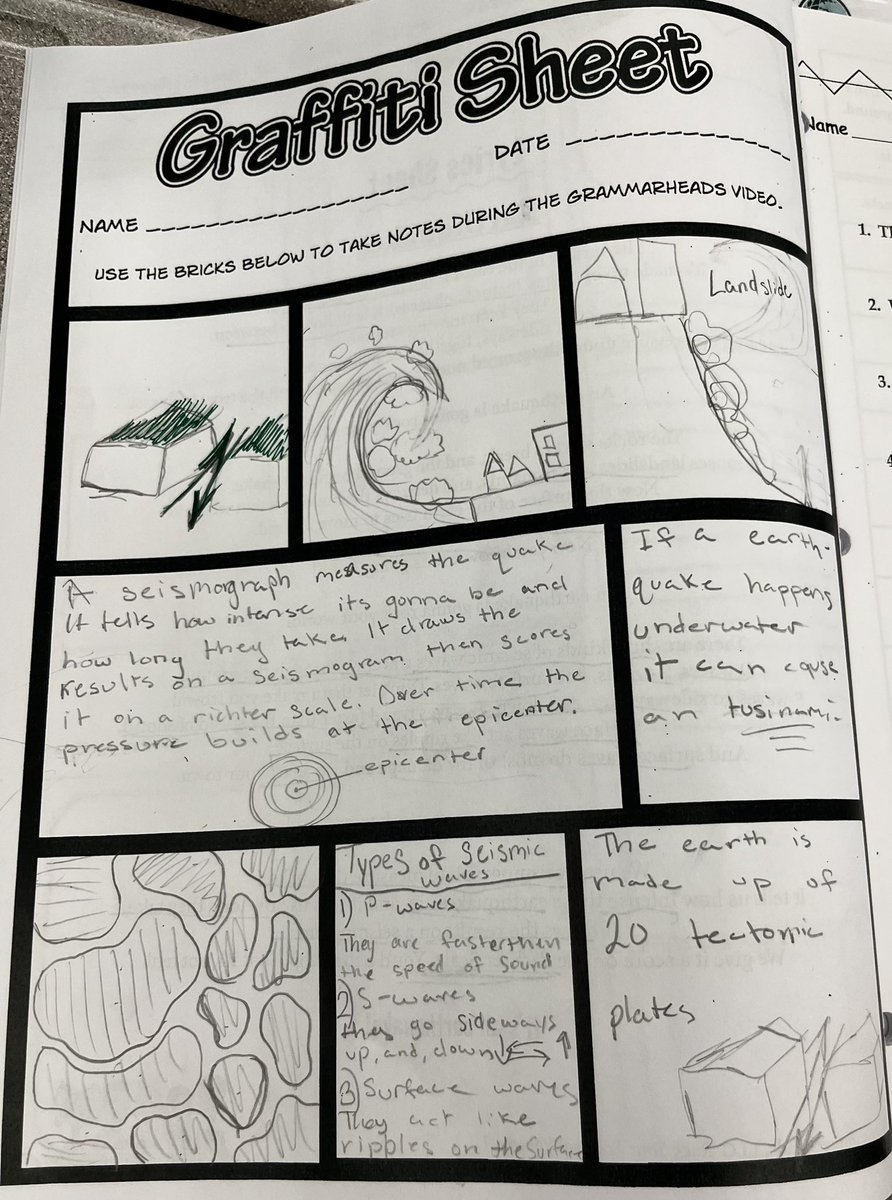 Graffiti Sheet
NAME
DATE
USE THE BRICKS BELOW TO TAKE NOTES DURING THE GRAMMARHEADS VIDEO.
Landslide
A seismograph measures the quake
It tells how intense its gonna be and
how long they take. It draws the
results on a seismogram then scores
it on a richter scale. Over time the
pressure builds at the epicenter.
epicenter
If a earth-
quake happens
underwater
it can cause
an tusinami.
Types of Seismic
waves
1) P-waves
They are faster then
the speed of sound
2) S-waves
they go sideways
up, and, down
3) Surface waves
They act like
ripples on the surface
The earth is
made up of
20 tectonic
plates
Name
1.
2.
3.
4